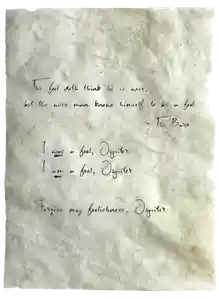 The fool doth think he is wise,
but the wise man knows himself to be a fool
- The Bard
I was a fool, Jupiter
I was a fool, Jupiter
Forgive my foolishness, Jupiter